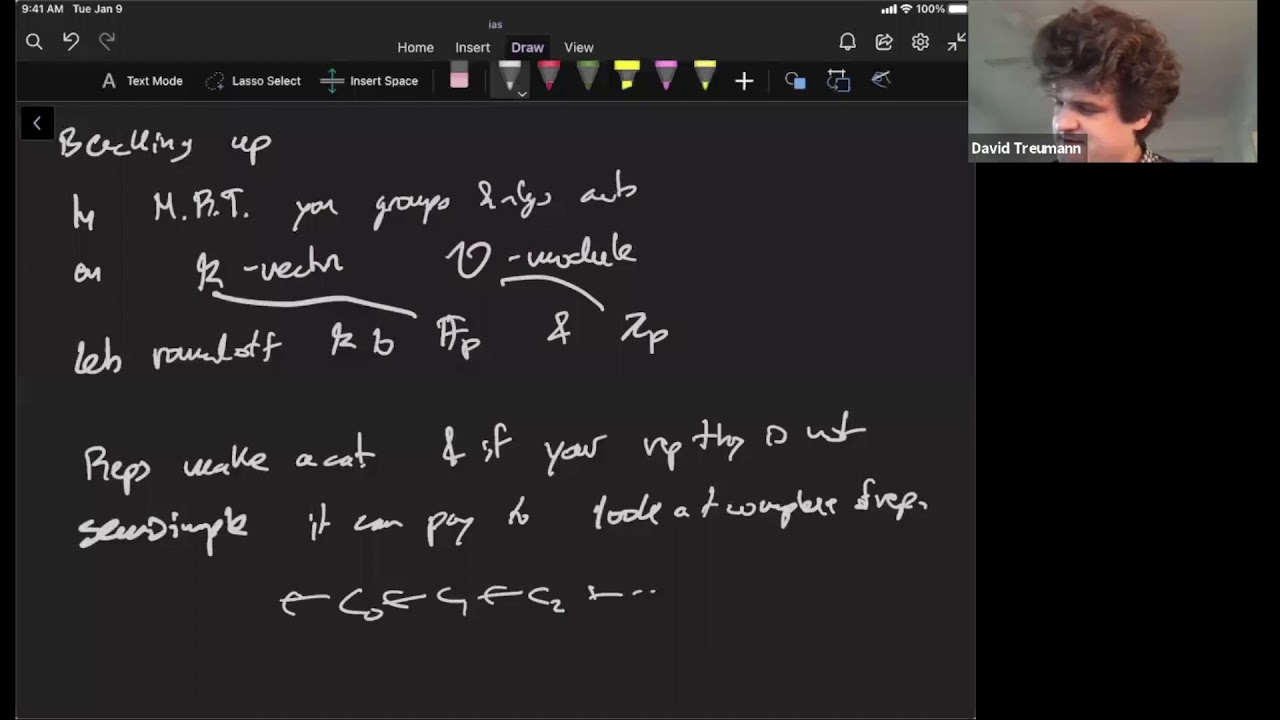 9:41 AM Tue Jan 9
100%
ias
Home Insert Draw View
A Text Mode Lasso Select Insert Space
David Treumann
Backing up
In M.R.T. your groups & algs act
on k-vector O-module
lets round off k to 𝔽p & ℤp
Reps make a cat & if your rep thy is not
semisimple it can pay to look at complexes of reps.
← C0 ← C1 ← C2 ← ...